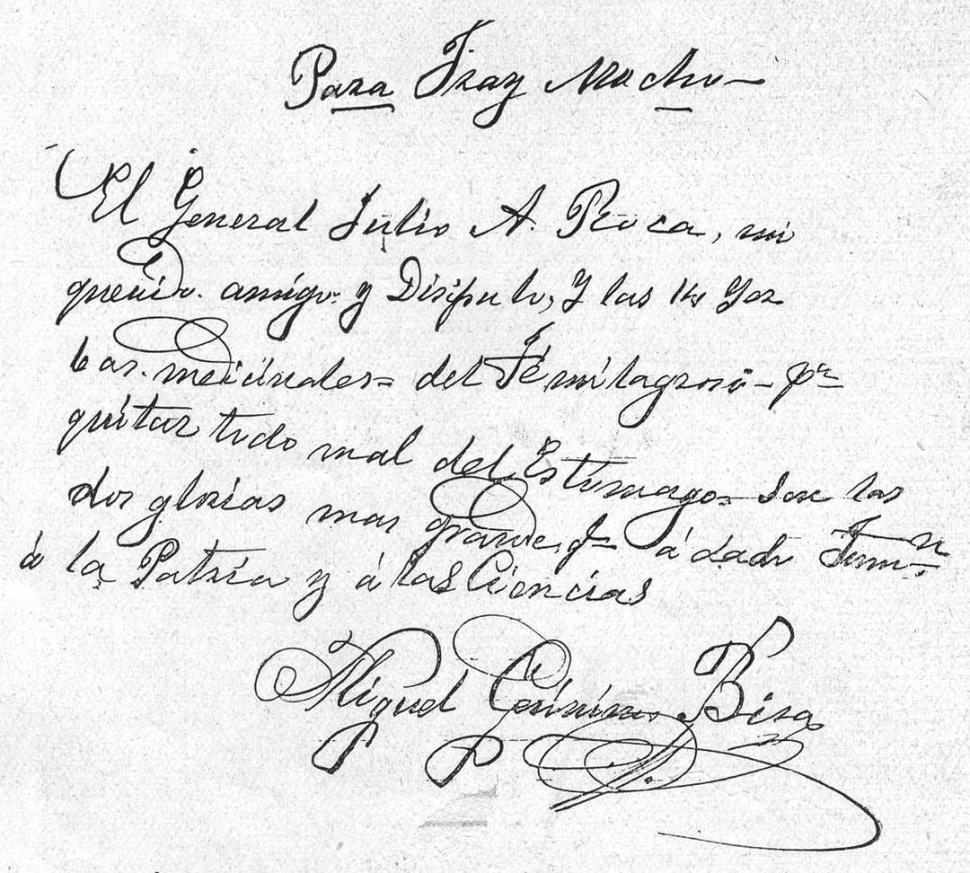 Para Fray Mocho
El General Julio A. Roca, mi
querido amigo y Disipulo, y las 14 Yer
bas medicinales del Té milagroso pª
quitar todo mal del Estómago Son las
dos glorias mas grande, qe á dado
á la Patria y á las Ciencias
Miguel